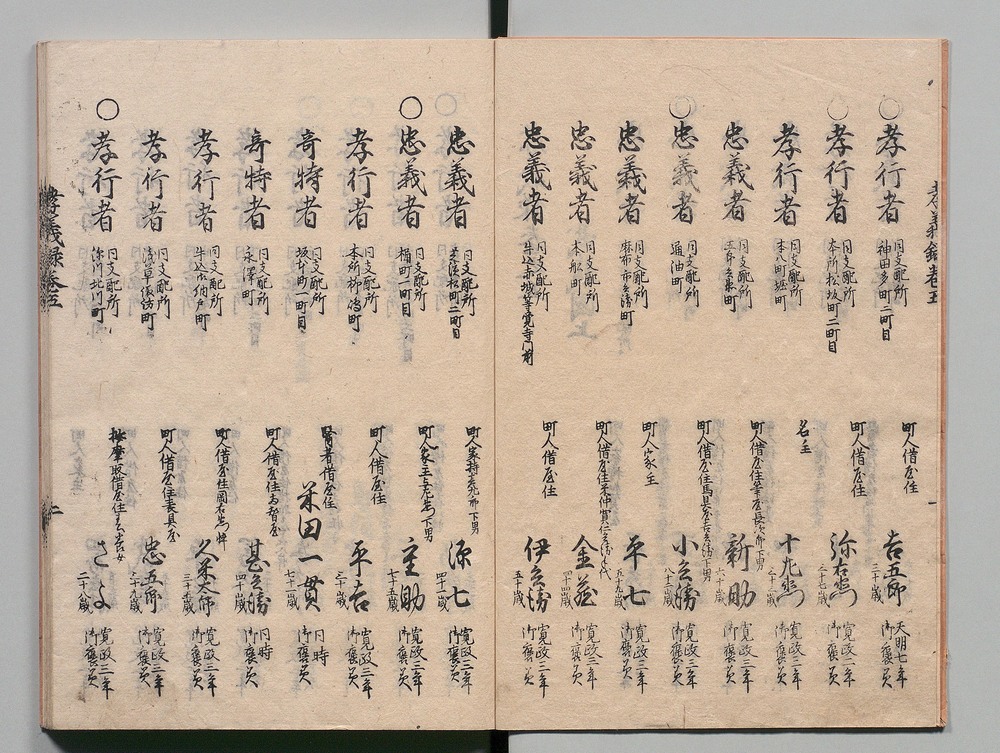 孝義録巻五
一
○孝行者 同支配所 神田多町二町目 町人借屋住 吉五郎 三十歳 天明七年 御褒美
○孝行者 同支配所 本所松坂町二町目 町人借屋住 弥右衛門 三十七歳 寛政二年 御褒美
孝行者 同支配所 本八町堀町 名主 十左衛門 寛政三年 御褒美
忠義者 同支配所 町人借屋住筆屋長次郎下男 新助 六十歳 寛政三年 御褒美
○忠義者 同支配所 通油町 町人借屋住馬具屋吉兵衛下男 小兵衛 八十三歳 寛政三年 御褒美
忠義者 同支配所 麻布市兵衛町 町人家主 平七 五十九歳 寛政三年 御褒美
忠義者 同支配所 本船町 町人借屋住 金蔵 四十四歳 寛政三年 御褒美
忠義者 同支配所 牛込赤城等覚寺門前 町人借屋住 伊兵衛 五十歳 寛政三年 御褒美
忠義者 同支配所 町人家持 下男 源七 四十一歳 寛政三年 御褒美
○忠義者 同支配所 樋町一町目 町人家主 下男 重助 七十五歳 寛政三年 御褒美
孝行者 同支配所 本所柳嶋町 町人借屋住 平吉 三十歳 寛政三年 御褒美
奇特者 同支配所 坂本町二町目 醫者借屋住 米田一貫 七十一歳 同時
奇特者 同支配所 永澤町 町人借屋住 甚兵衛 四十歳 同時 御褒美
孝行者 同支配所 牛込御納戸町 町人借屋住 久米太郎 寛政三年 御褒美
孝行者 同支配所 浅草 町 町人借屋住表具屋 忠五郎 三十九歳 寛政三年 御褒美
○孝行者 同支配所 深川北川町 借屋住 女 さよ 二十八歳 寛政三年 御褒美
孝義録巻五
二